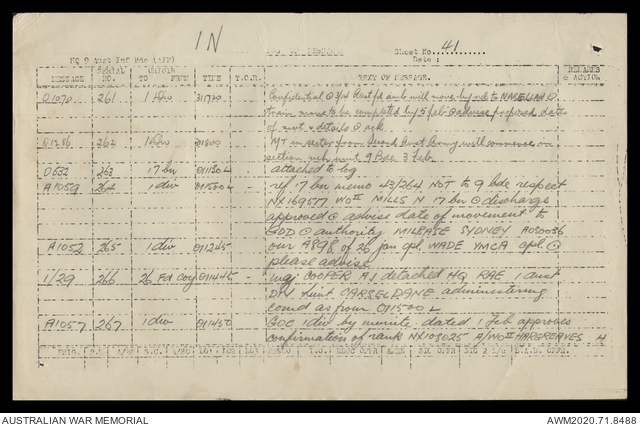 IN
Sheet No. 41
HQ 9 Aust Inf Bde (AIF)
Date :
MESSAGE SERIAL NO. ORIGIN TO FROM TIME T.O.R. TEXT OF MESSAGE. REMARKS & ACTION
O1070 261 1 Div 311730 Confidential Aust fd amb will move by rd to
move to be completed by 5 Feb advise proposed dates
of mov details ask
262 1 Div 011800 MT in sector from Aust Army will commence in
section 9 Bde 3 Feb.
O532 263 17 bn 011150L attached to log
A1059 264 1 div 011500L - ref 17 bn memo 43/264 NOT to 9 bde respect
NX169517 WOII MILLS N 17 bn discharge
approved advise date of movement to
GDD authority MILBASE SYDNEY
A1052 265 1 div 011245 - our A898 of 26 jan cpl WADE YMCA cpl
please advise
1/29 266 26 Fd coy 011445 - maj COOPER AI detached HQ RAE 1 aust
DIV Lieut CARSELDANE administering
comd as from 011500L
A1057 267 1 div 011450 GOC 1 div by minute dated 1 Feb approves
confirmation of rank NX108025 A/WOII HARGREAVES
AUSTRALIAN WAR MEMORIAL
AWM2020.71.8488